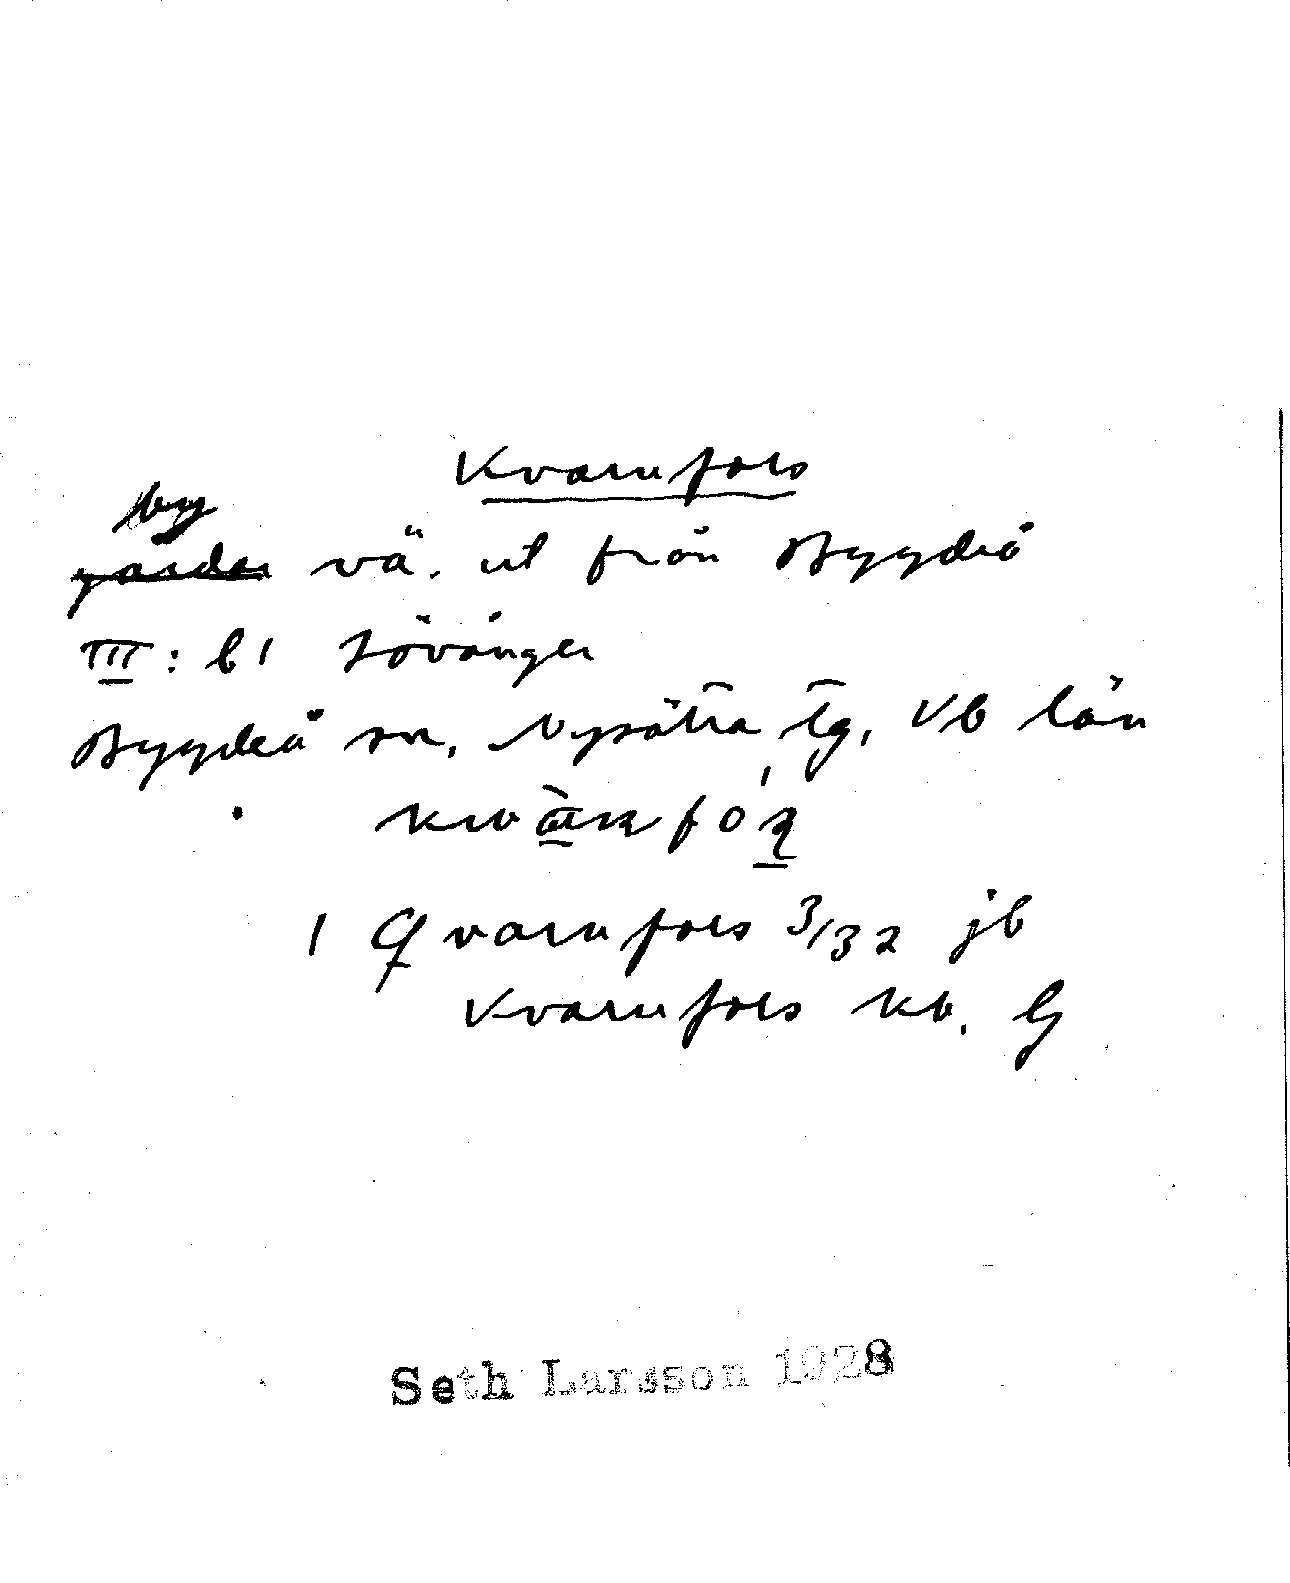 Kvarnfors
by
gårdar vä. ut från Bygdeå
III: b1 Lövånger
Bygdeå sn, Nysätra tg, Vb län
1 Qvarnfors 3/32 jb
Kvarnfors kb. G
Seth Larsson 1928